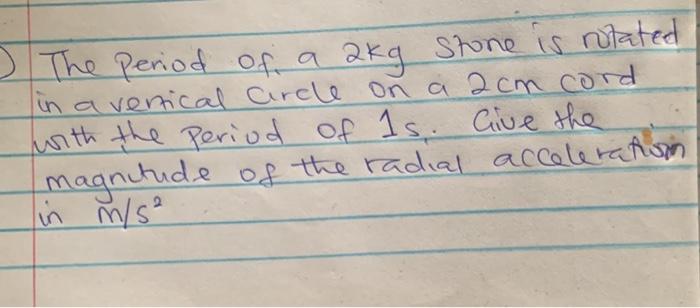 The Period of a 2kg Stone is rotated
in a vertical circle on a 2cm cord
with the Period of 1s. Give the
magnitude of the radial acceleration
in m/s²